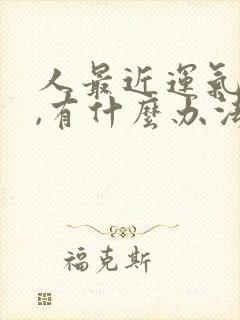 人最近運氣
,有什麽办法
福克斯